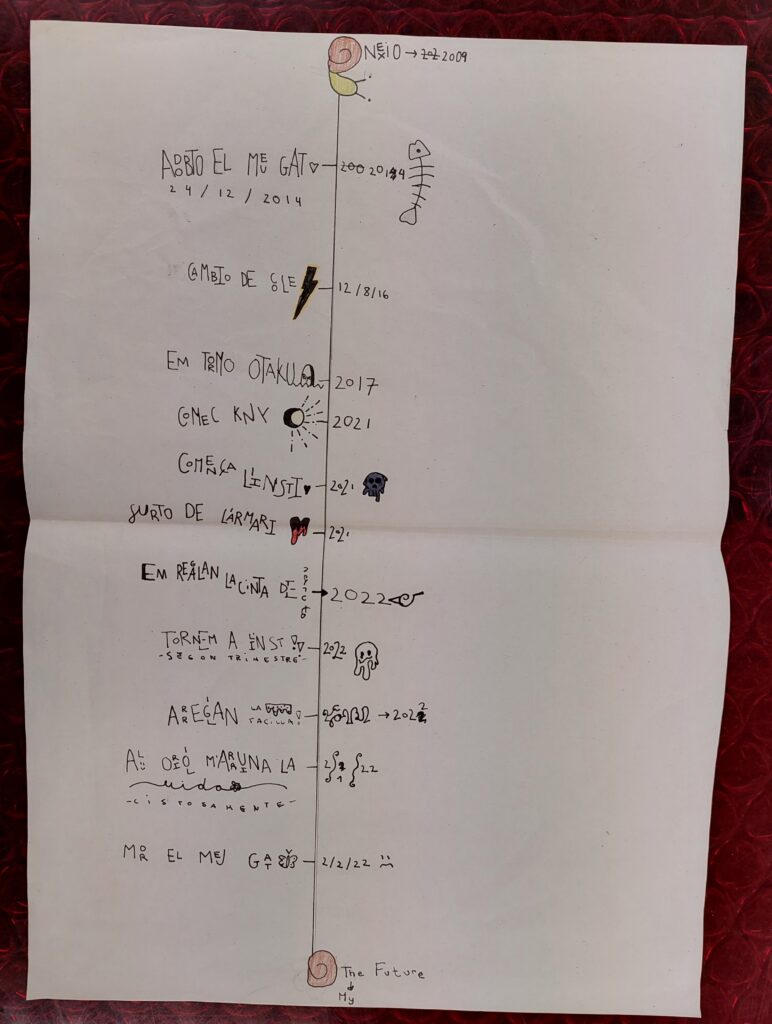 NEIXO → 2009
ADOBTO EL MEU GAT 2014
24/12/2014
CAMBIO DE COLE 12/8/16
EM TORNO OTAKU 2017
COMEC KNY 2021
COMENÇA L'INSTI 2021
SURTO DE L'ARMARI 2021
EM REGALAN LA CINTA DE 2022
TORNEM A L'INSTI 2022
-SEGON TRIMESTRE-
ARREGLAN LA → 2022
TACILLA!
AL ORIOL M'ARRUINA LA
vida
-CISTOSAMENTE-
MOR EL MEJ GAT 2/2/22
The Future
My